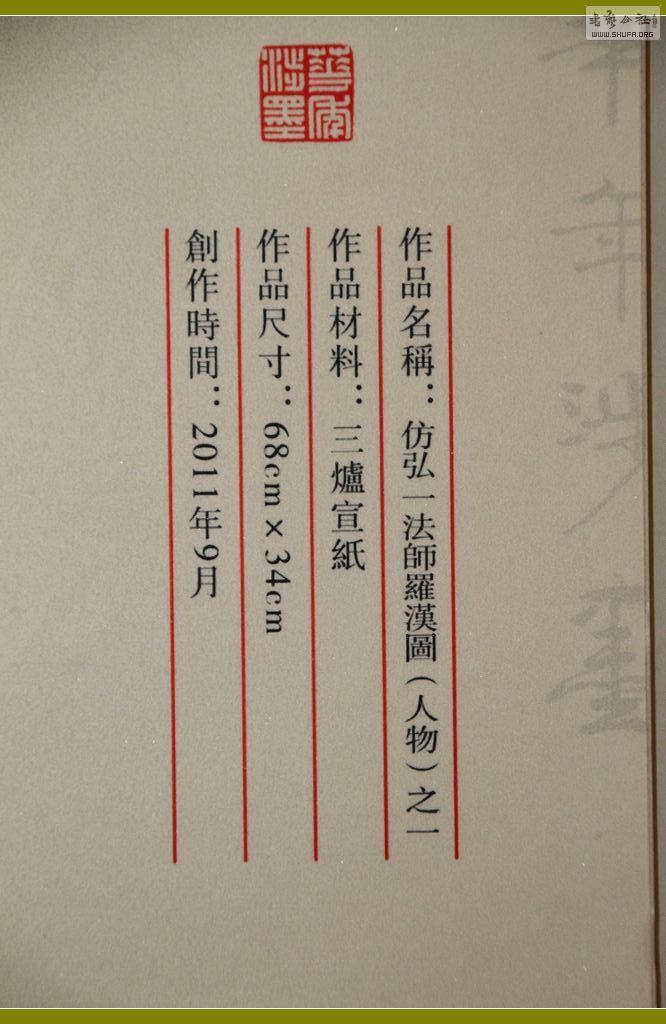 作品名稱：仿弘一法師羅漢圖（人物）之一
作品材料：三爐宣紙
作品尺寸：68cm×34cm
創作時間：2011年9月
華年涉墨
華年涉墨
書藝公社
WWW.SHUFA.ORG